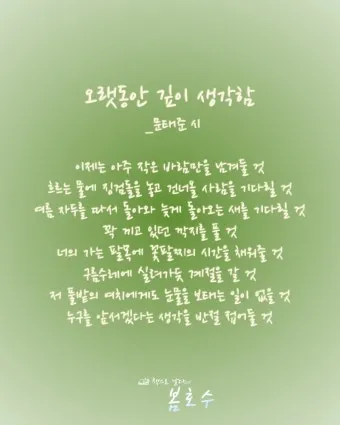 오랫동안 깊이 생각함
_문태준 시
이제는 아주 작은 바람만을 남겨둘 것
흐르는 물에 징검돌을 놓고 건너올 사람을 기다릴 것
여름 자두를 따서 돌아오다 늦게 돌아오는 새를 기다릴 것
꽉 끼고 있던 깍지를 풀 것
너의 가는 팔목에 꽃팔찌의 시간을 채워줄 것
구름수레에 실려가듯 계절을 갈 것
저 풀밭의 여치에게도 눈물을 보태는 일이 없을 것
누구를 앞서겠다는 생각을 반절 접어둘 것
봄 호 수